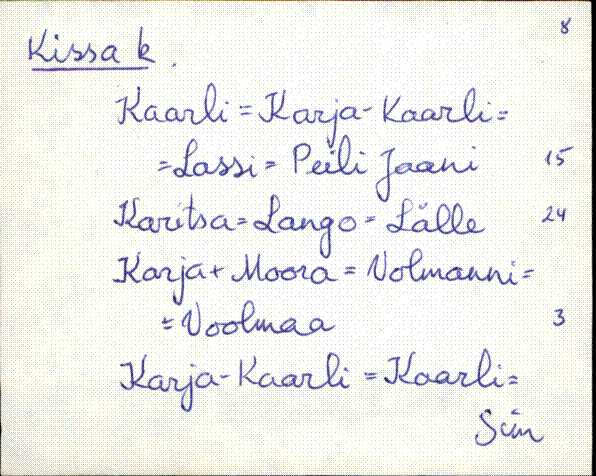 8
Kissa k.
Kaarli = Karja-Kaarli =
= Lassi = Peili Jaani 15
Karitsa = Lango = Lälle 24
Karja + Moora = Volmanni =
= Voolmaa 3
Karja-Kaarli = Kaarli =
Siin